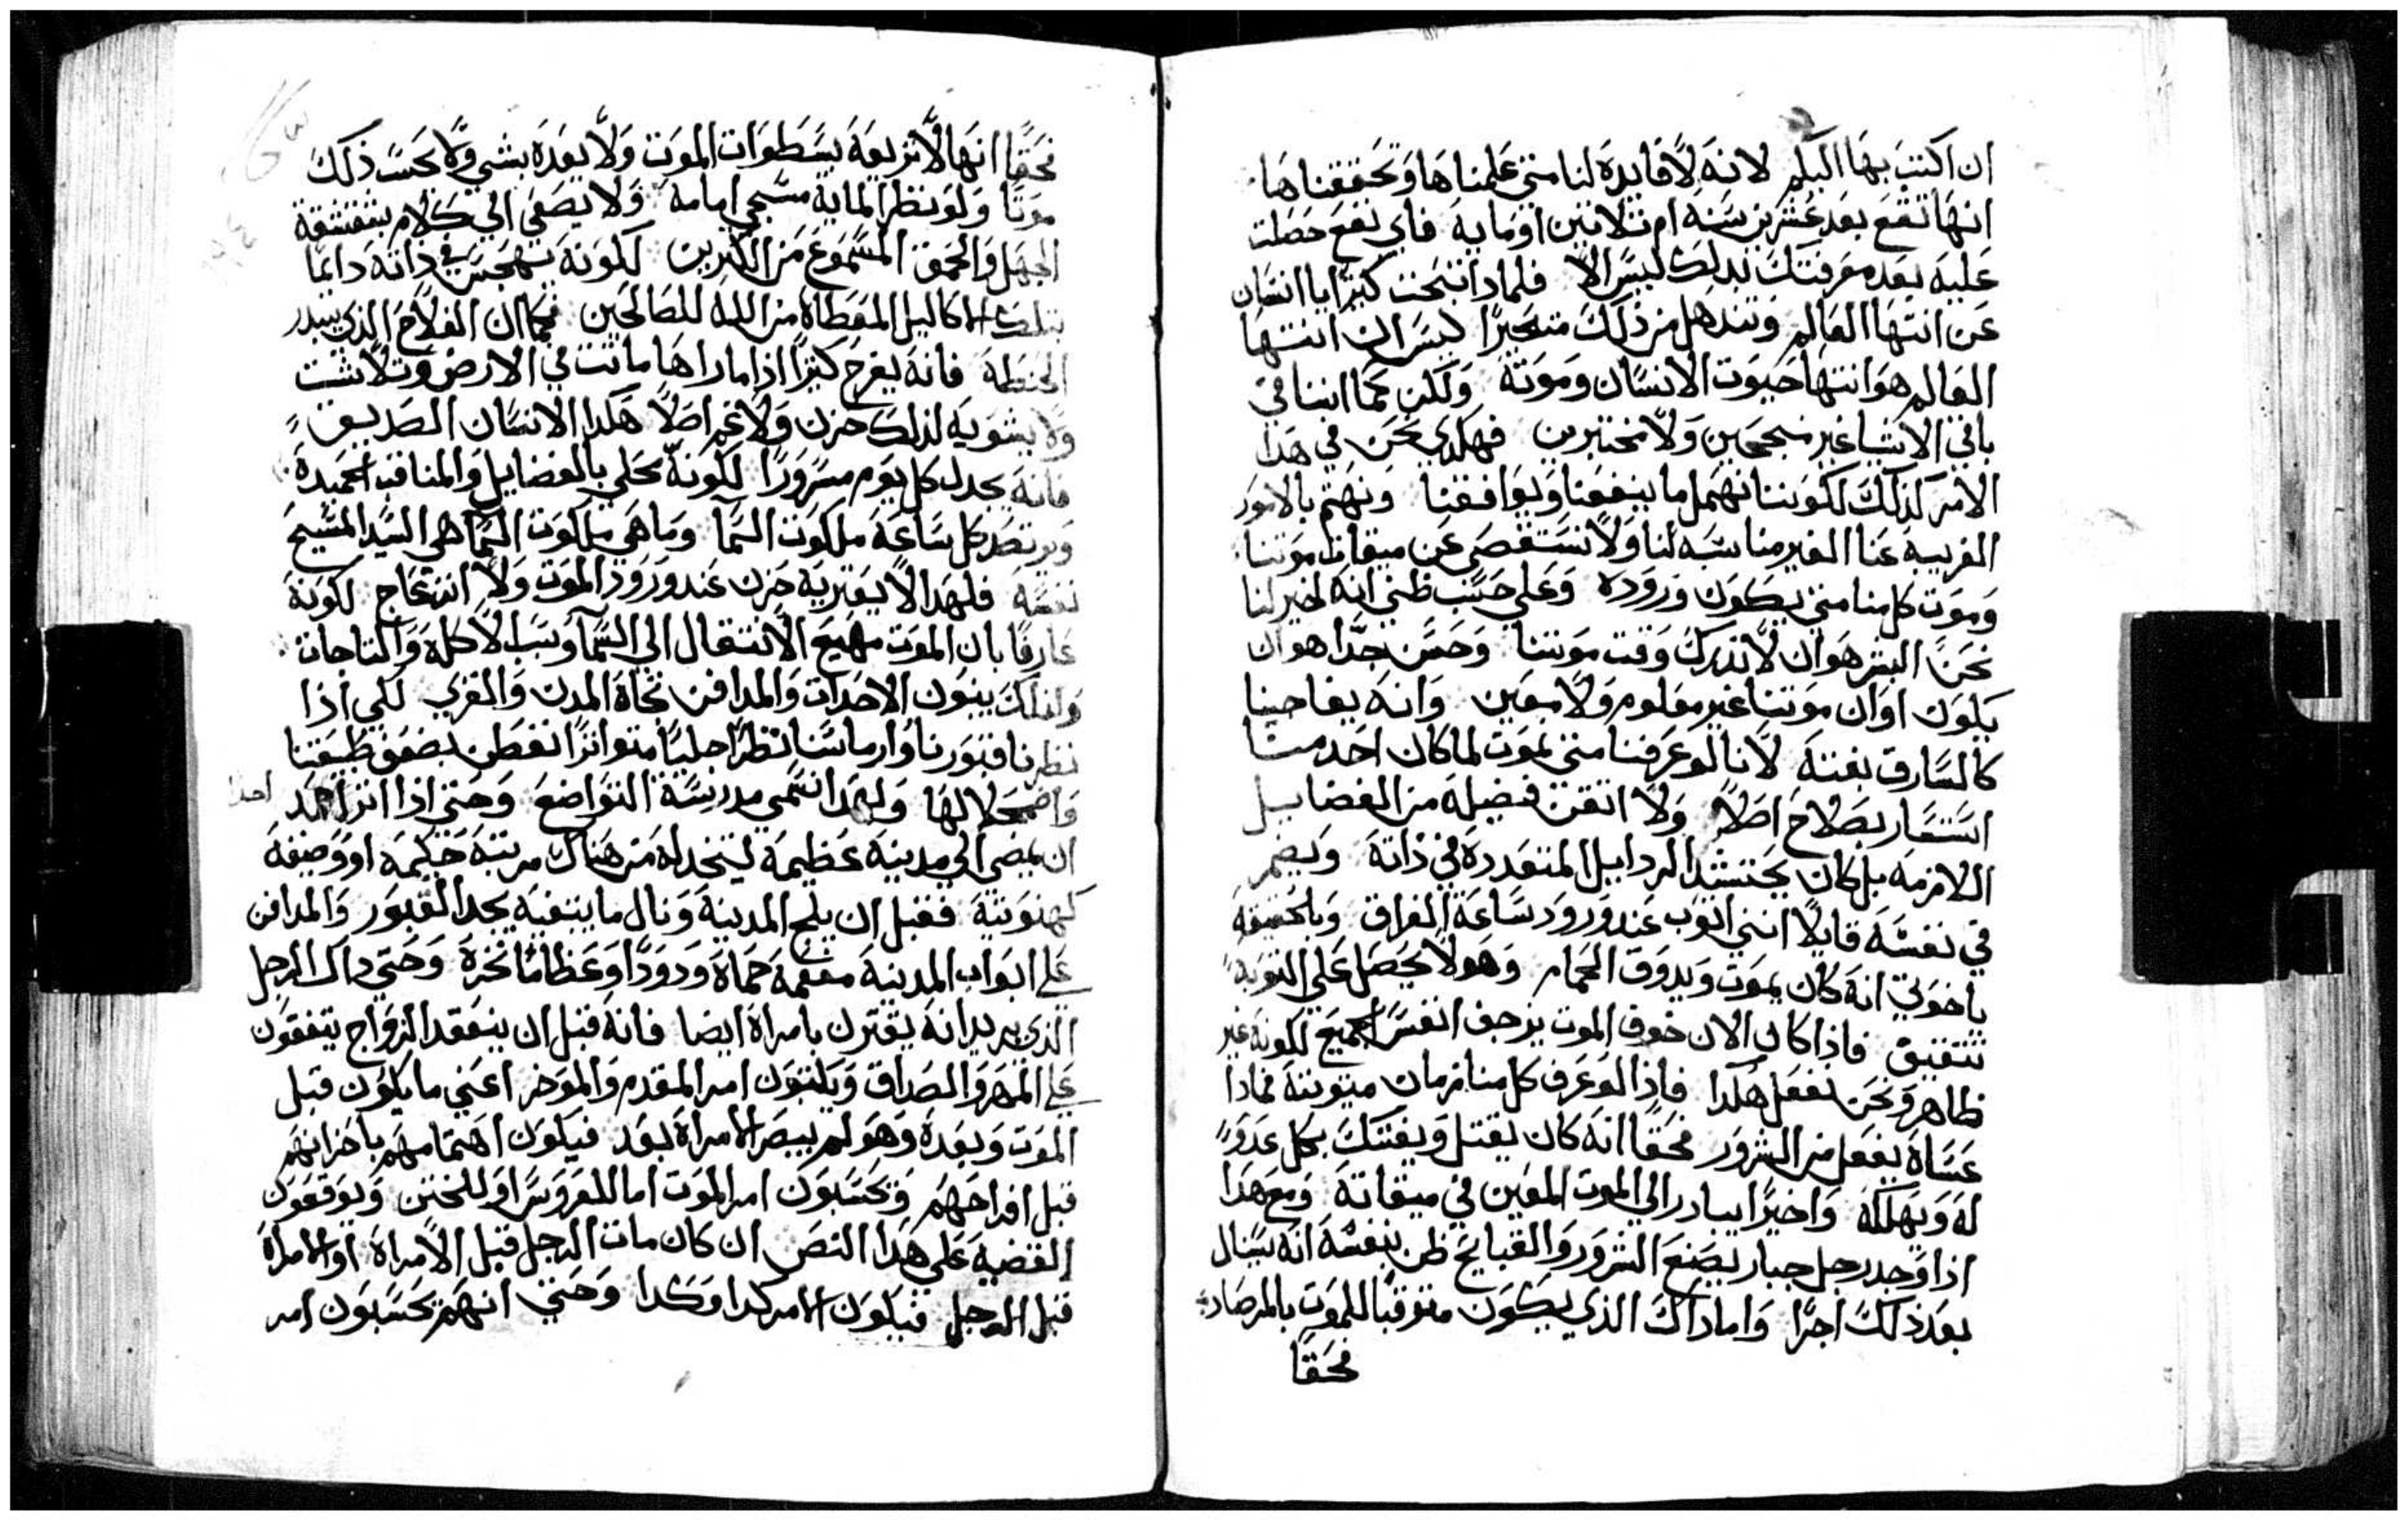 ان اكتب بها اليكم لانه لا فايده لنا متي علمناها وتحققناها
انها تقع بعد عشرين سنه ام تلاتين او مايه فاي نفع حصلت
عليه بعد معرفتك بدلك ليس الا فلمادا تبحت كتيرا يا انسان
عن انتها العالم وتندهل من ذلك متحيرا ليس ان انتها
العالم هو انتها حيوت الانسان وموته ولكن كما اننا في
باقي الاشيا غير منجحين ولا مختبرين فهكدي نحن في هدا
الامر كذلك لكوننا نهمل ما ينفعنا ويوافقنا ونهتم بالامور
الغريبه عنا الغير مناسبه لنا ولا نستقصي عن ميقات موتنا
وموت كل منا متي يكون وروده وعلي حسب ظني انه لخير لنا
نحن البشر هو ان لا ندرك وقت موتنا وحسن جدا هو ان
يكون اوان موتنا غير معلوم ولا معين وانه يفاجينا
كالسارق بغته لانا لو عرفنا متي نموت لما كان احد منا
استسار بصلاح اصلا ولا اتقن فضيله من الفضايل
اللازمه بل كان يحتشد الردايل المتعدده في داته ويضمر
في نفسه قايلا انني اتوب عند ورود ساعة الفراق وبالحقيقه
ياخوتي انه كان يموت ويدوق الحمام وهو لا يحصل علي التوبه
تتقيق فاذا كان الان خوف الموت يزحف انفس الجميع لكونه غير
ظاهر ونحن نفعل هكدا فاذا لو عرف كل منا زمان ميتوتته فمادا
عساه يفعل من الشرور فحقا انه كان يقتل ويفتك بكل عدو
له ويهلكه واخيرا يبادر الي الموت المعين في ميقاته ومع هدا
اذا وجد رجل جبار يصنع الشرور والقبايح ظن بنفسه انه ينال
بعد ذلك اجرا واما داك الذي يكون متوقبا للموت بالمرصاد
فحقا
فحقا انها لا تريعه سطوات الموت ولا يعده بشي ولا يحسب ذلك
موتا ولو نظر الماية مسجي امامه ولا يصغي الي كلام بشقشقة
الجهل والحمق المسموع من الكتيرين لكونه يهجس في ذاته دايما
بتلك الاكاليل المعطاه من الله للصالحين فكما ان الفلاح الذي يبدر
الحنطه فانه يفرح كتيرا اذا ما راها ماتت في الارض وتلاشت
ولا يشوبه لذلك حزن ولا غم اصلا هكدا الانسان الصديق
فانه يجدل كل يوم مسرورا لكونه تحلي بالفضايل والمناقب الحميده
ويرتصد كل ساعه ملكوت السما وما هي ملكوت السما هي السيد المسيح
نفسه فلهدا لا يعتريه حزن عند ورود الموت ولا انزعاج لكونه
عارفا بان الموت مهيع الانتقال الي السما وسبب الاكله والتاجات
ولذلك يبنون الاحدات والمدافن تجاه المدن والقري لكي اذا
نظرنا قبورنا وارماسنا نظرا جليا متواترا نفطن بضعف طبيعتنا
واضمحلالها ولهدا تسمي مدرسة التواضع وحتي اذا اتر احد
ان يمضي الي مدينه عظيمه ليتخد له من هناك مرتبة حكيمه او وصيفه
كهنوتية فقبل ان يلج المدينه ونال ما يبتغيه يجد القبور والمدافن
علي ابواب المدينه مفعمة حماه ودودا وعظاما نخرة وحتي داك الرجل
الذي يريد انه يقترن بامراه ايضا فانه قبل ان ينعقد الزواج يتفقون
علي المهر والصداق ويكتبون امر المقدم والموخر اعني ما يكون قبل
الموت وبعده وهو لم يبصر الامراة بعد فيكون اهتمامهم باحزانهم
قبل افراحهم وتحسبون امر الموت اما للعروس او للختن ويوقعون
القضيه علي هدا النص ان كان مات الرجل قبل الامراة او الامراة
قبل الرجل فيكون الامر كدا وكدا وحتي انهم تحسبون امر
احدا